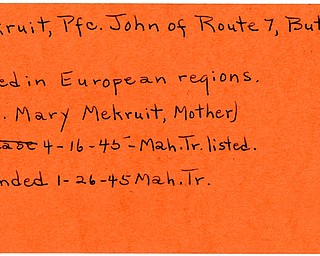 kruit, Pfc. John of Route 7, But
ed in European regions.
. Mary Mekruit, Mother)
4-16-45-Mah.Tr. listed.
nded 1-26-45 Mah.Tr.